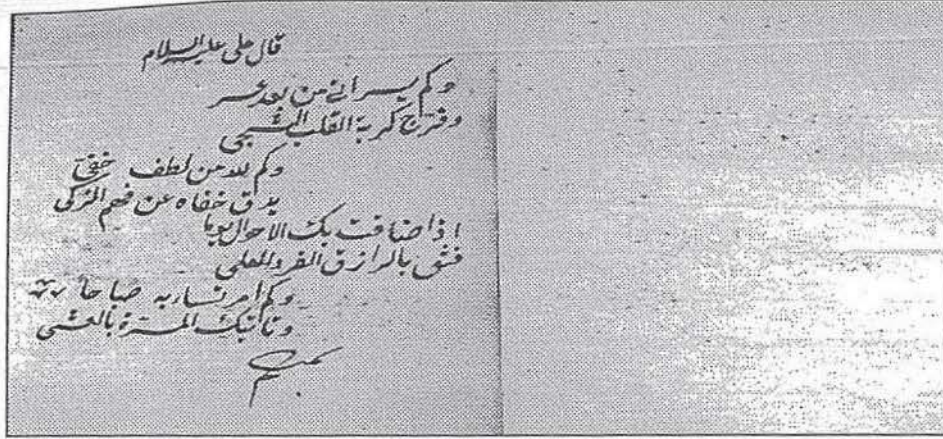 قال علی علیه السلام
وکم یسر اتی من بعد عسر
وفرّج کربة القلب الشجی
وکم لله من لطف خفیّ
یدق خفاه عن فهم الزکی
اذا ضاقت بک الاحوال یوما
فثق بالرازق الفرد العلی
وکم امر تساء به صباحا
وتاتیک المسرة بالعشی